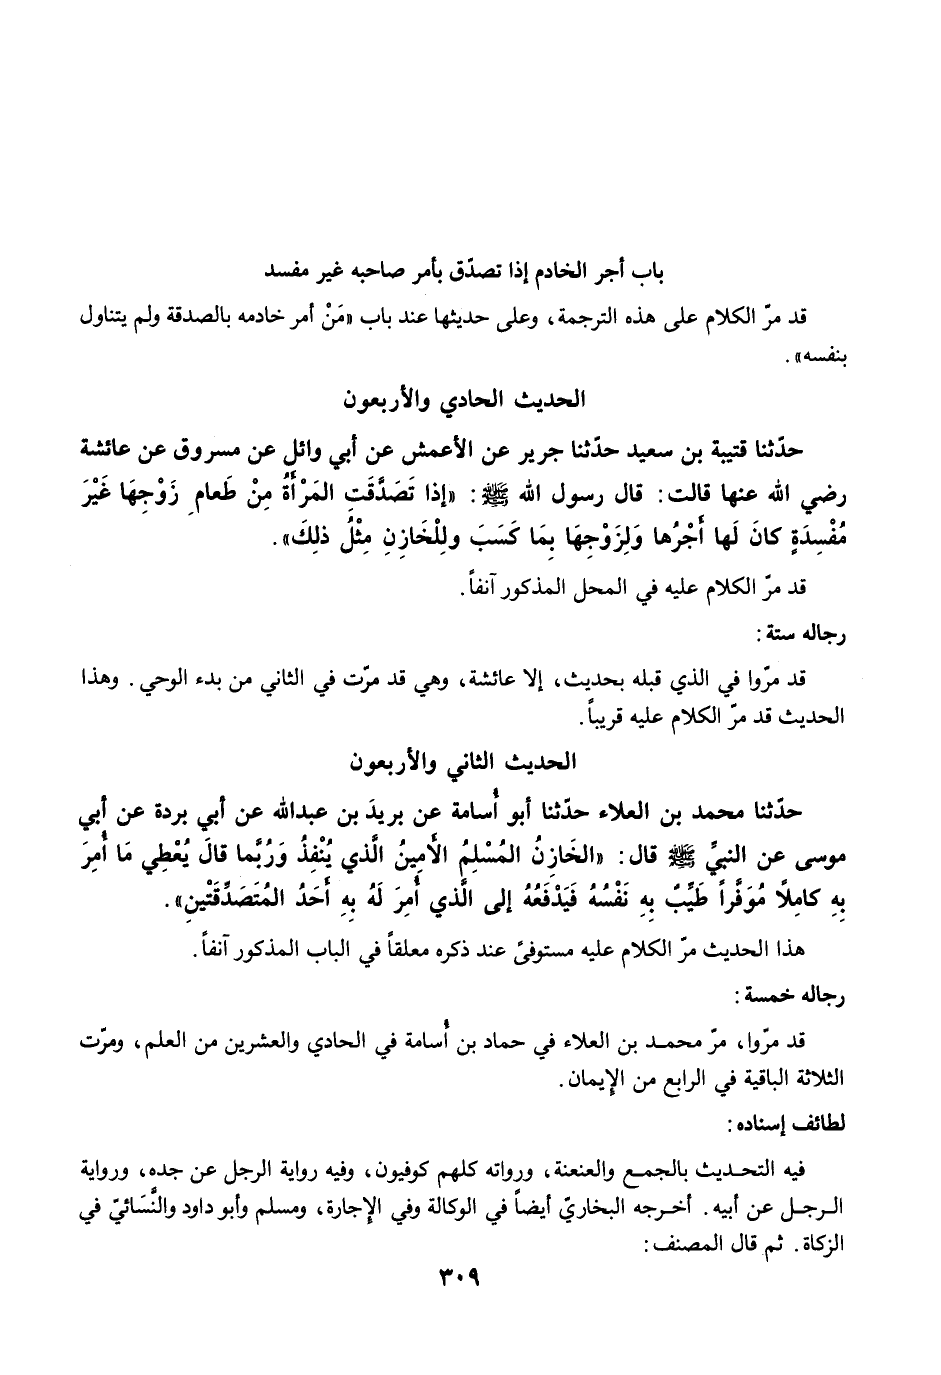 باب أجر الخادم إذا تصدّق بأمر صاحبه غير مفسد
قد مرّ الكلام على هذه الترجمة، وعلى حديثها عند باب «مَنْ أمر خادمه بالصدقة ولم يتناول
بنفسه».
الحديث الحادي والأربعون
حدّثنا قتيبة بن سعيد حدّثنا جرير عن الأعمش عن أبي وائل عن مسروق عن عائشة
رضي الله عنها قالت: قال رسول الله ﷺ: «إذا تَصَدَّقَتِ المَرْأَةُ مِنْ طَعامِ زَوْجِهَا غَيْرَ
مُفْسِدَةٍ كانَ لَها أَجْرُها وَلِزَوْجِهَا بِمَا كَسَبَ وللْخَازِنِ مِثْلُ ذلِكَ».
قد مرّ الكلام عليه في المحل المذكور آنفاً.
رجاله ستة:
قد مرّوا في الذي قبله بحديث، إلا عائشة، وهي قد مرّت في الثاني من بدء الوحي. وهذا
الحديث قد مرّ الكلام عليه قريباً.
الحديث الثاني والأربعون
حدّثنا محمد بن العلاء حدّثنا أبو أُسامة عن بريدَ بن عبدالله عن أبي بردة عن أبي
موسى عن النبيِّ ﷺ قال: «الخَازِنُ المُسْلِمُ الأَمِينُ الَّذي يُنْفِذُ وَرُبَّما قالَ يُعْطِي مَا أُمِرَ
بِهِ كامِلًا مُوَفَّراً طَيِّبٌ بِهِ نَفْسُهُ فَيَدْفَعُهُ إلى الَّذي أُمِرَ لَهُ بِهِ أَحَدُ المُتَصَدِّقَتْينِ».
هذا الحديث مرّ الكلام عليه مستوفىً عند ذكره معلقاً في الباب المذكور آنفاً.
رجاله خمسة:
قد مرّوا، مرّ محمد بن العلاء في حماد بن أُسامة في الحادي والعشرين من العلم، ومرّت
الثلاثة الباقية في الرابع من الإِيمان.
لطائف إسناده:
فيه التحديث بالجمع والعنعنة، ورواته كلهم كوفيون، وفيه رواية الرجل عن جده، ورواية
الرجل عن أبيه. أخرجه البخاريّ أيضاً في الوكالة وفي الإجارة، ومسلم وأبو داود والنَّسَائيّ في
الزكاة. ثم قال المصنف:
٣٠٩